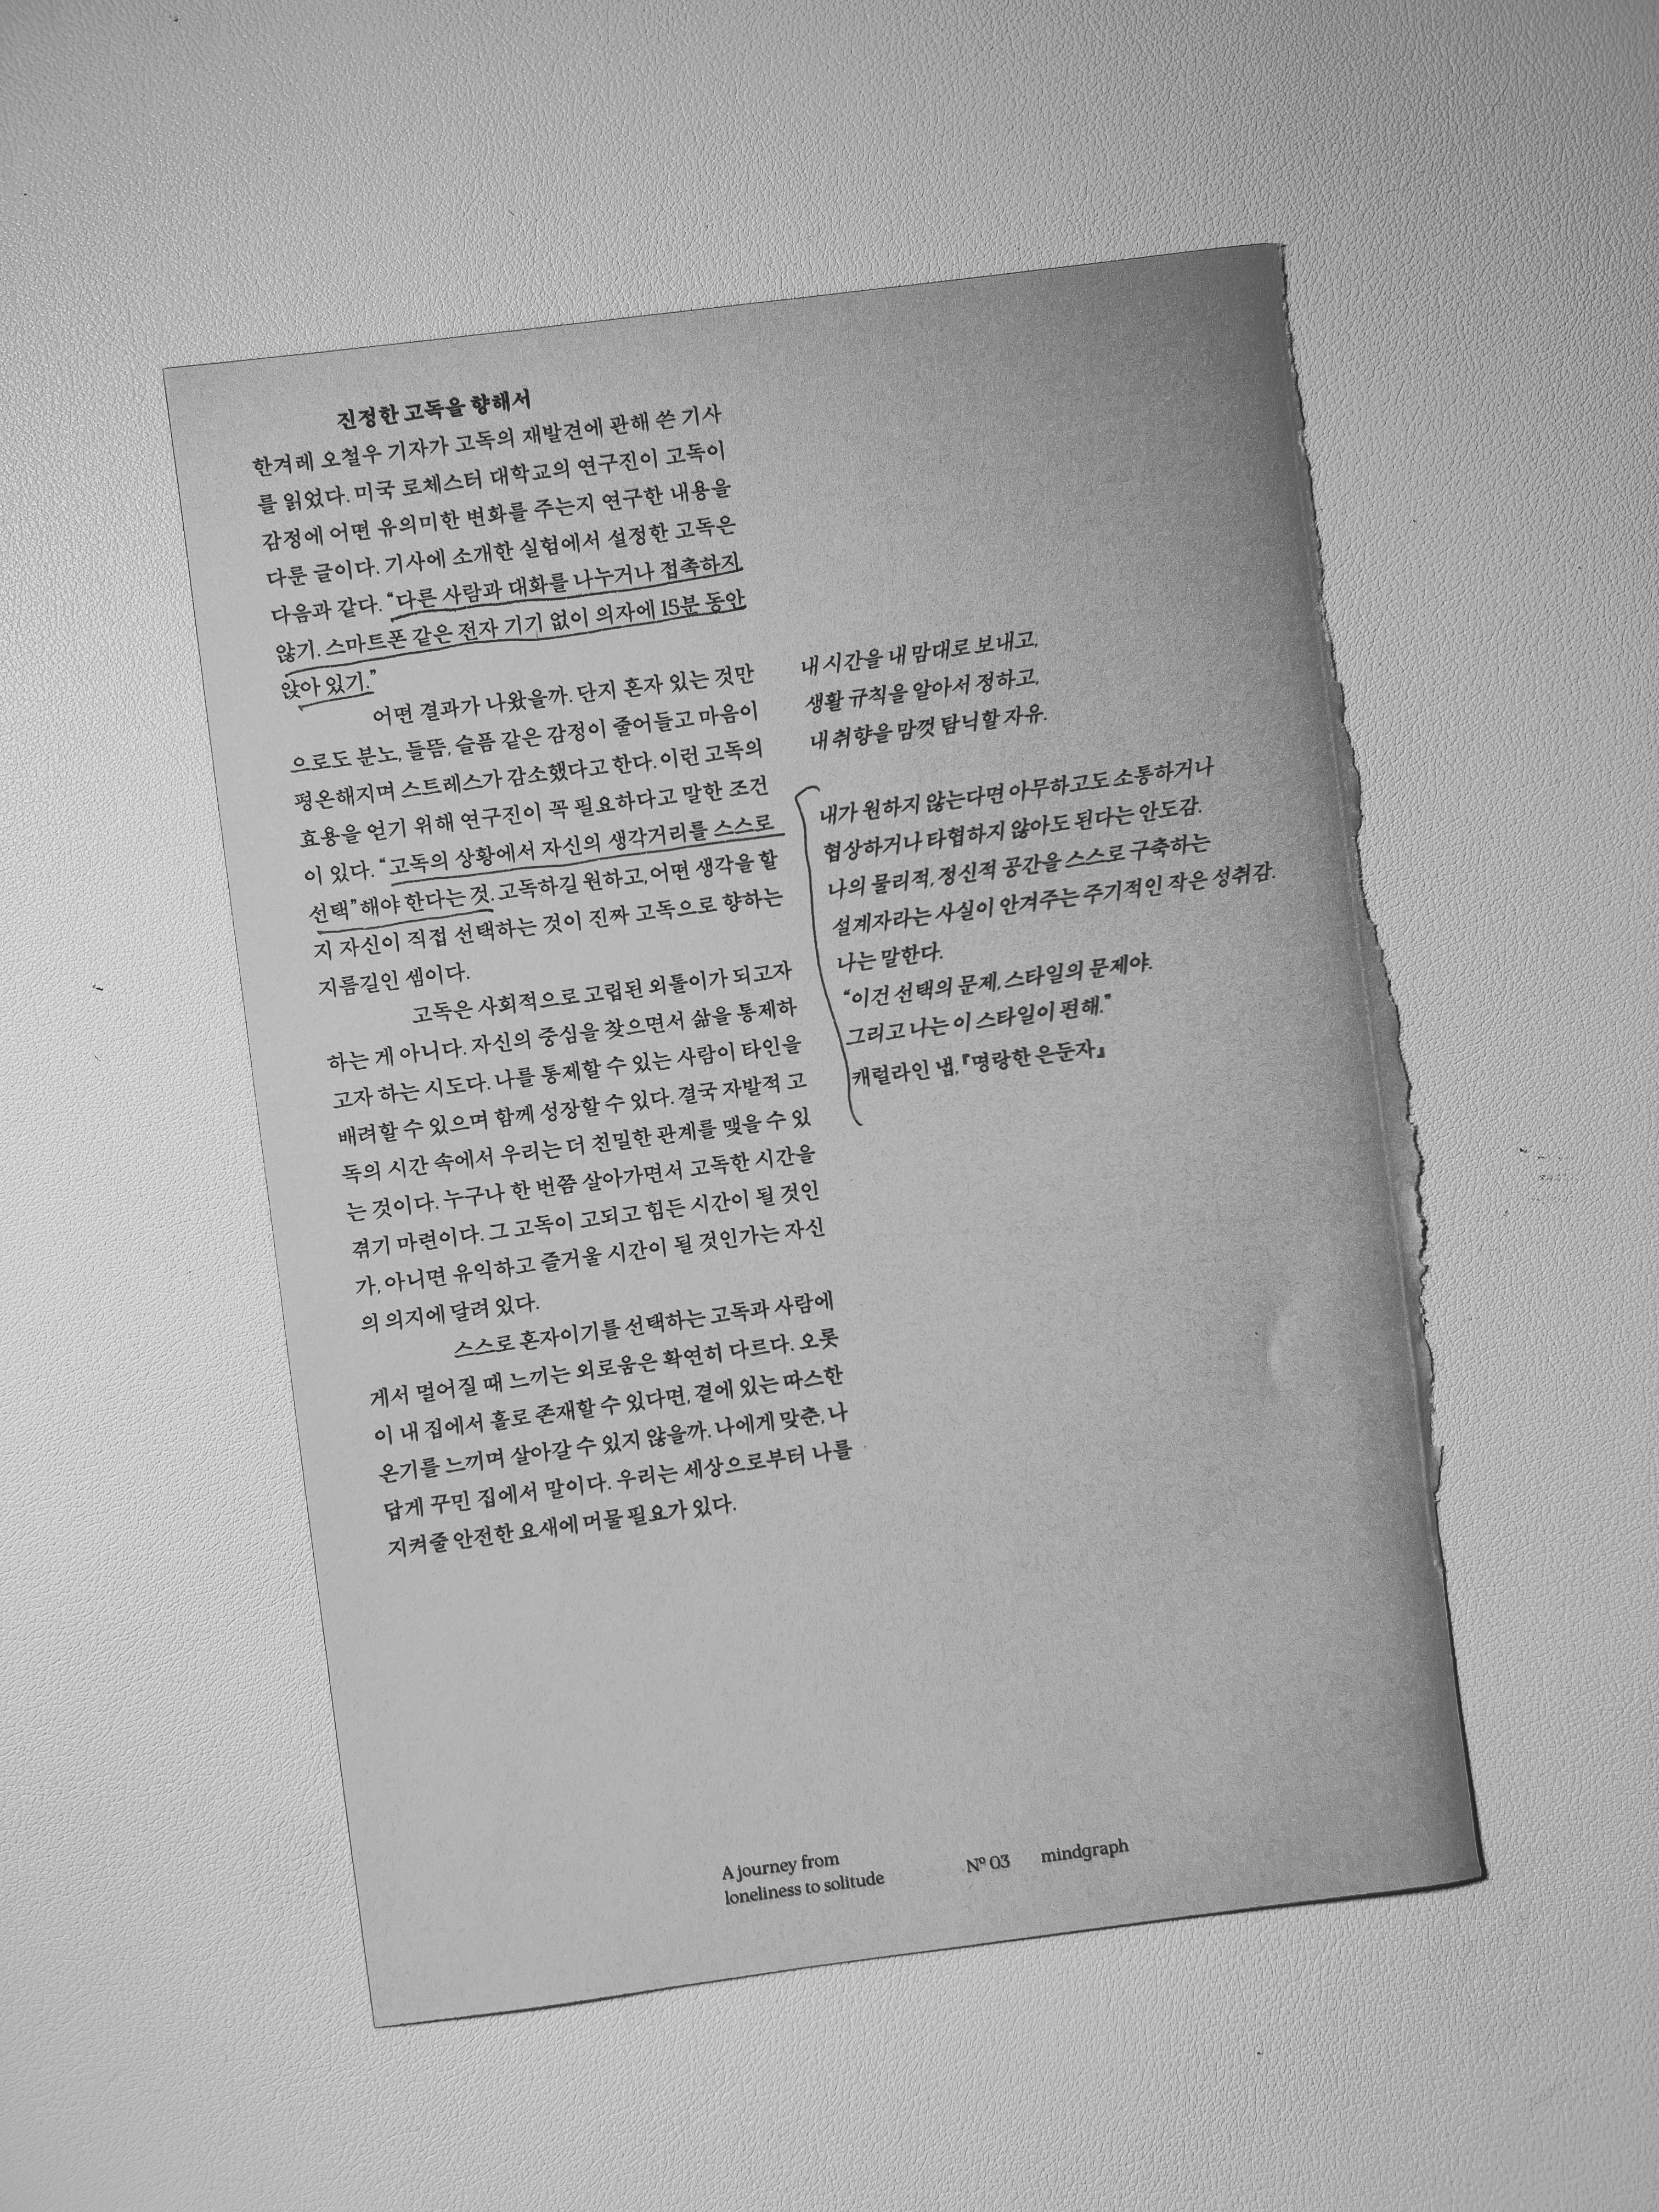 진정한 고독을 향해서
한겨레 오철우 기자가 고독의 재발견에 관해 쓴 기사
를 읽었다. 미국 로체스터 대학교의 연구진이 고독이
감정에 어떤 유의미한 변화를 주는지 연구한 내용을
다룬 글이다. 기사에 소개한 실험에서 설정한 고독은
다음과 같다. “다른 사람과 대화를 나누거나 접촉하지
않기. 스마트폰 같은 전자 기기 없이 의자에 15분 동안
앉아 있기.”
어떤 결과가 나왔을까. 단지 혼자 있는 것만
으로도 분노, 들뜸, 슬픔 같은 감정이 줄어들고 마음이
평온해지며 스트레스가 감소했다고 한다. 이런 고독의
효용을 얻기 위해 연구진이 꼭 필요하다고 말한 조건
이 있다. “고독의 상황에서 자신의 생각거리를 스스로
선택”해야 한다는 것. 고독하길 원하고, 어떤 생각을 할
지 자신이 직접 선택하는 것이 진짜 고독으로 향하는
지름길인 셈이다.
고독은 사회적으로 고립된 외톨이가 되고자
하는 게 아니다. 자신의 중심을 찾으면서 삶을 통제하
고자 하는 시도다. 나를 통제할 수 있는 사람이 타인을
배려할 수 있으며 함께 성장할 수 있다. 결국 자발적 고
독의 시간 속에서 우리는 더 친밀한 관계를 맺을 수 있
는 것이다. 누구나 한 번쯤 살아가면서 고독한 시간을
겪기 마련이다. 그 고독이 고되고 힘든 시간이 될 것인
가, 아니면 유익하고 즐거울 시간이 될 것인가는 자신
의 의지에 달려 있다.
스스로 혼자이기를 선택하는 고독과 사람에
게서 멀어질 때 느끼는 외로움은 확연히 다르다. 오롯
이 내 집에서 홀로 존재할 수 있다면, 곁에 있는 따스한
온기를 느끼며 살아갈 수 있지 않을까. 나에게 맞춘, 나
답게 꾸민 집에서 말이다. 우리는 세상으로부터 나를
지켜줄 안전한 요새에 머물 필요가 있다.
내 시간을 내 맘대로 보내고,
생활 규칙을 알아서 정하고,
내 취향을 맘껏 탐닉할 자유.
내가 원하지 않는다면 아무하고도 소통하거나
협상하거나 타협하지 않아도 된다는 안도감.
나의 물리적, 정신적 공간을 스스로 구축하는
설계자라는 사실이 안겨주는 주기적인 작은 성취감.
나는 말한다.
“이건 선택의 문제, 스타일의 문제야.
그리고 나는 이 스타일이 편해.”
캐럴라인 냅, 『명랑한 은둔자』
A journey from
loneliness to solitude
Nº 03
mindgraph